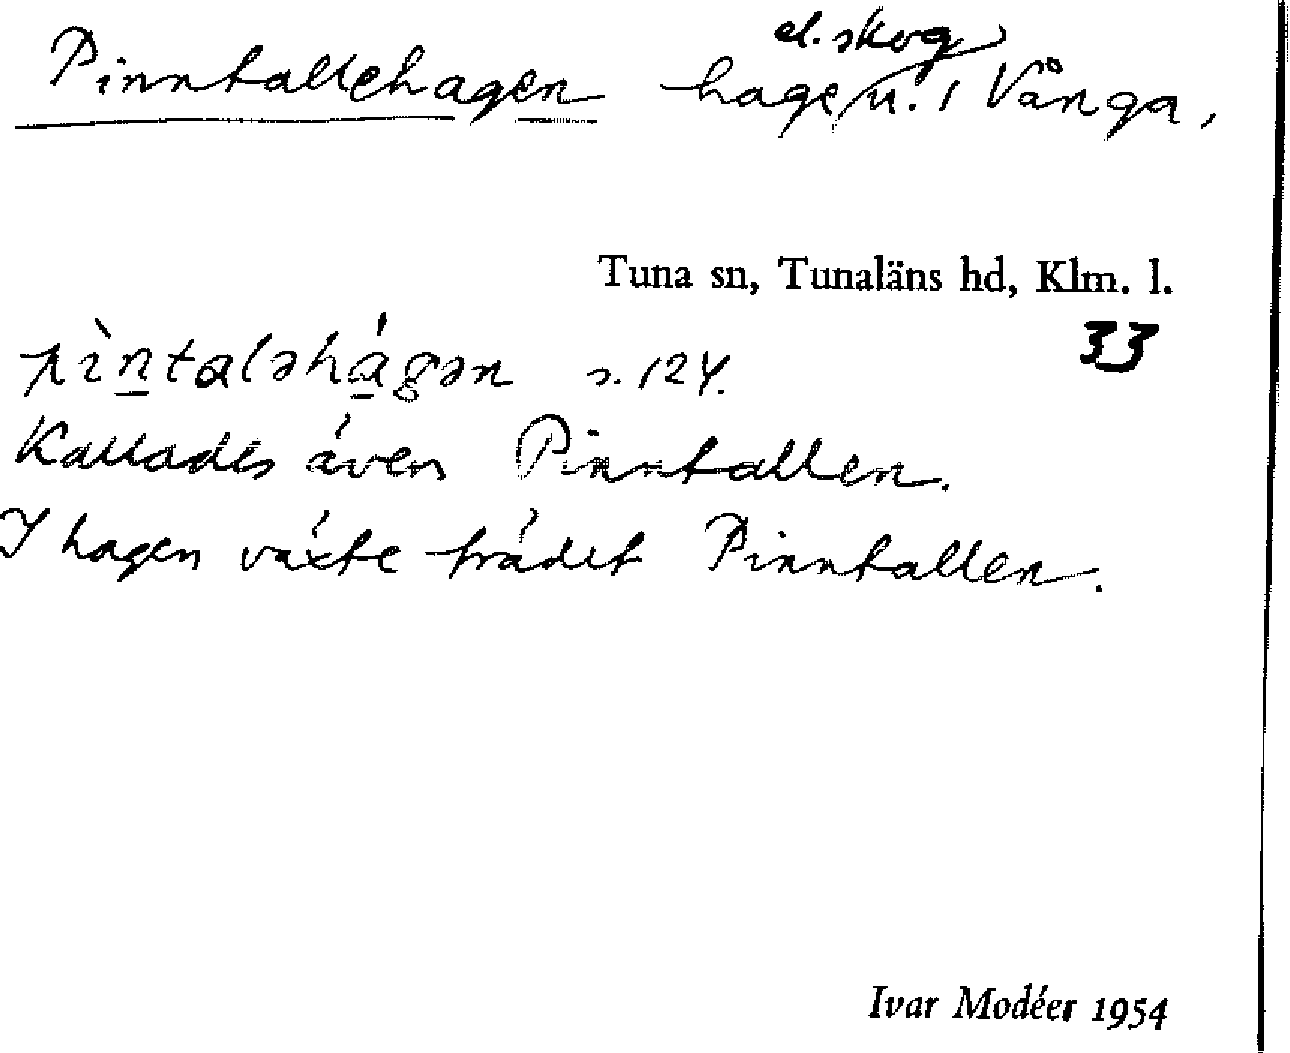 Pinntallehagen hage el. skog u. / Vånga,
Tuna sn, Tunaläns hd, Klm. l.
33
pìn̲taləhá̲gən s. 124.
Kallades även Pinntallen.
I hagen växte trädet Pinntallen.
Ivar Modéer 1954